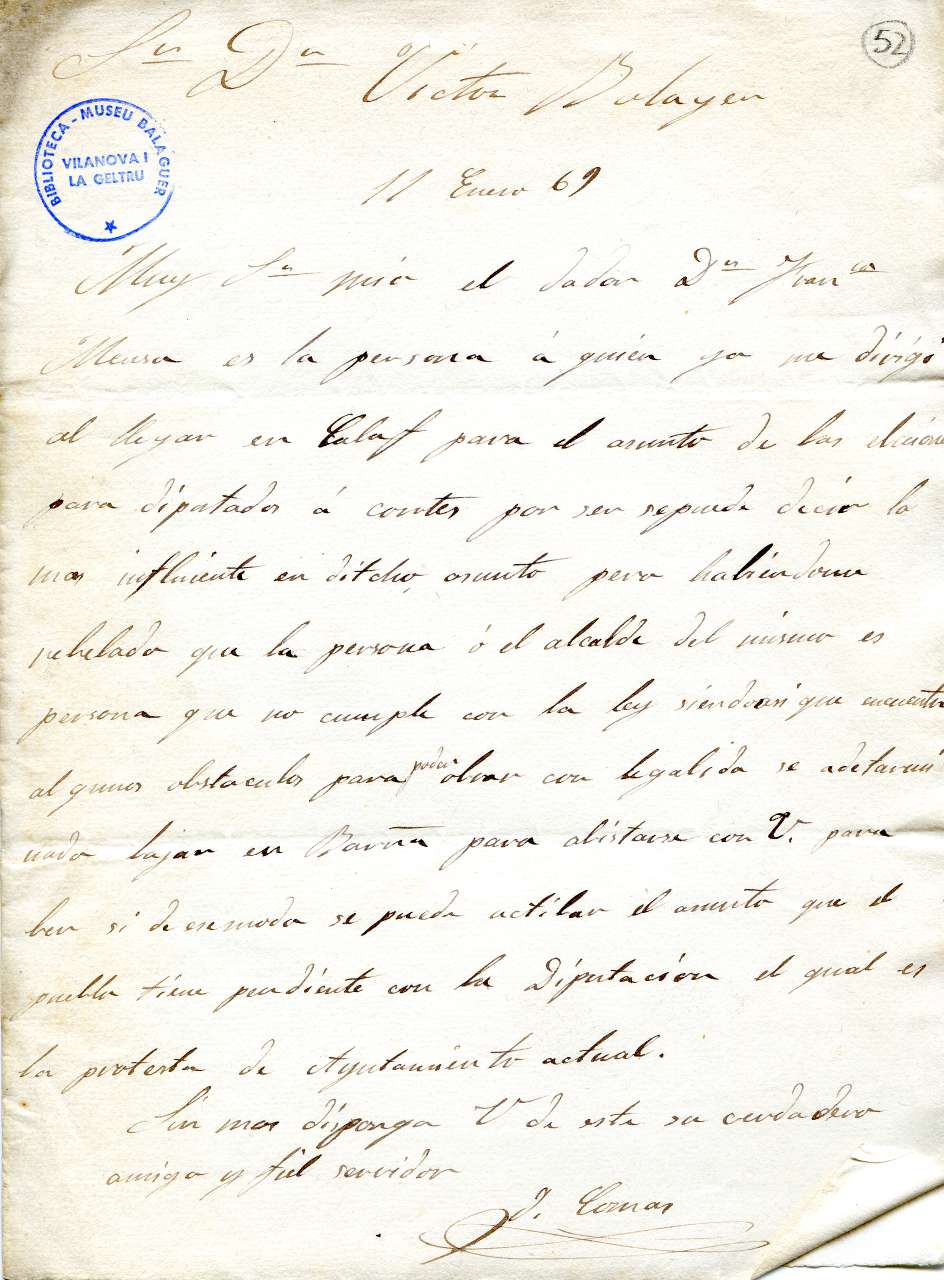 52
Sr. Dn. Victor Balaguer
BIBLIOTECA - MUSEU BALAGUER
VILANOVA I
LA GELTRU
11 Enero 69
Muy Sr mio el dador Dn Francco
Mensa es la persona á quien yo me dirigí
al llegar en Calaf para el asunto de las elecione
para diputados á cortes por ser sepuede decir la
mas influiente en ditcho asunto pero habiendome
rebelado que la persona ó el alcalde del mismo es
persona que no cumple con la ley siendoasi que encuentra
algunos obstaculos para poder obrar con legalida se a detarmi
nado bajar en Barna para abistarse con V. para
ber si de ese modo se puede actibar el asunto que el
pueblo tiene pendiente con la Diputacion el qual es
la protesta de Ayuntamiento actual.
Sin mas disponga V de este su verdadero
amigo y fiel servidor
J. Comas